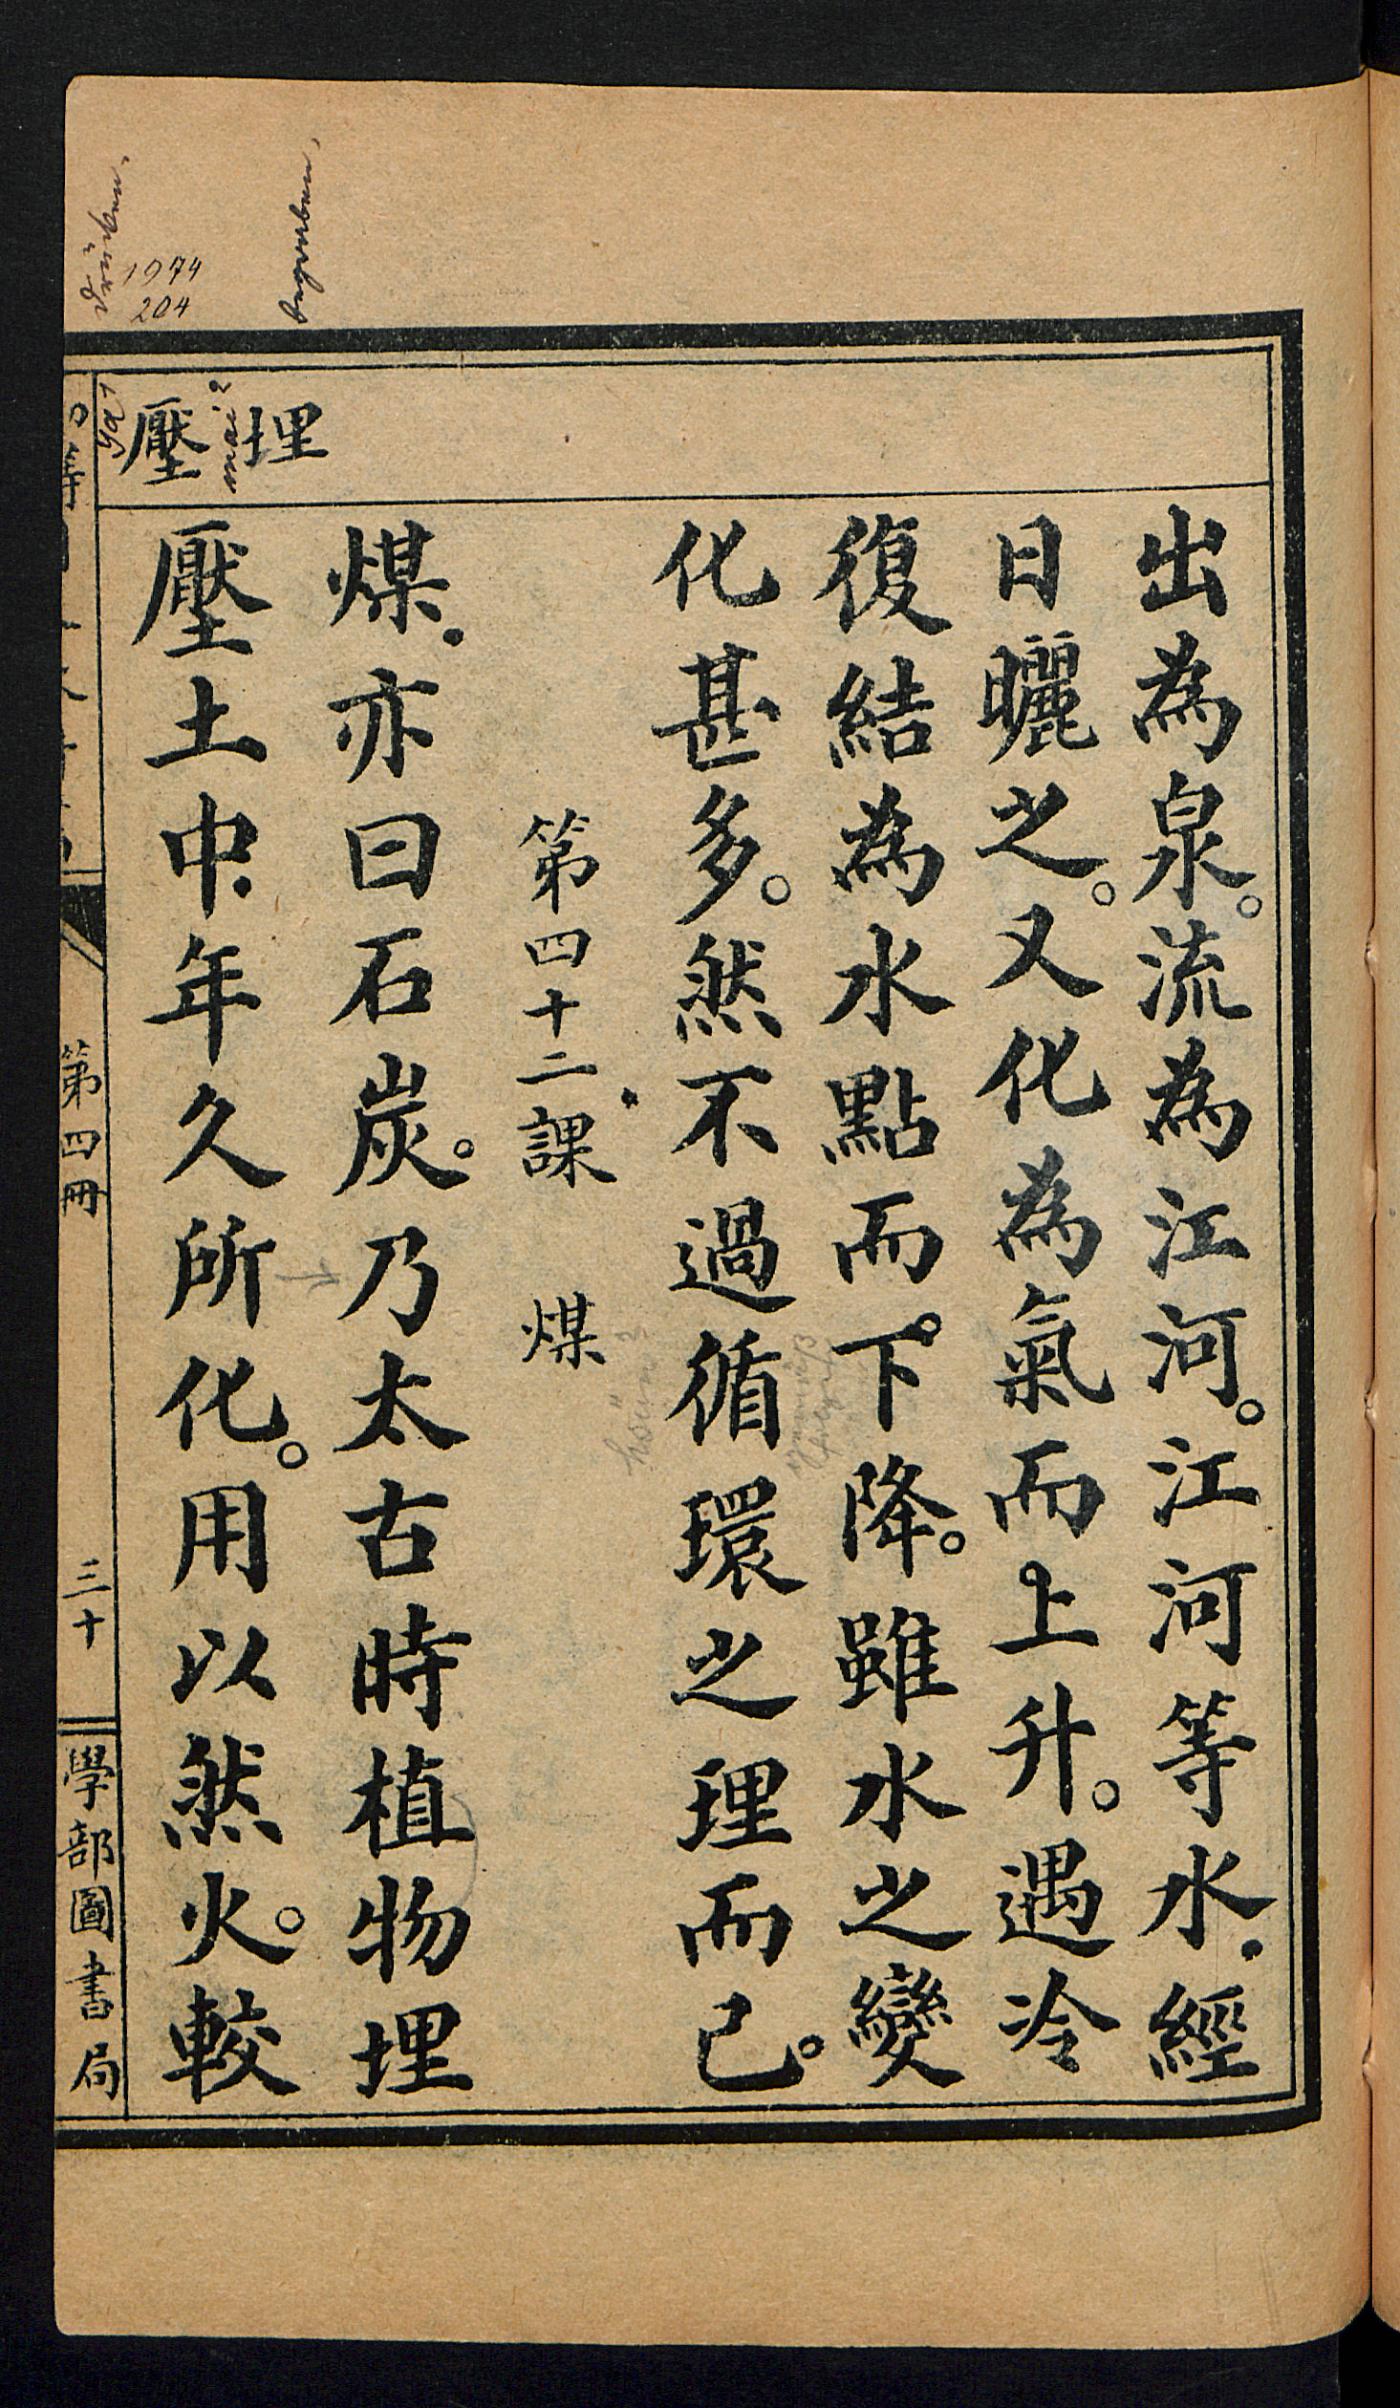 埋
壓
出為泉。流為江河。江河等水.經
日曬之。又化為氣而上升。遇冷
復結為水點而下降。雖水之變
化甚多。然不過循環之理而已。
第四十二課 煤
煤.亦曰石炭。乃太古時植物埋
壓土中.年久所化。用以然火。較
第四冊
三十
學部圖書局
1974
204